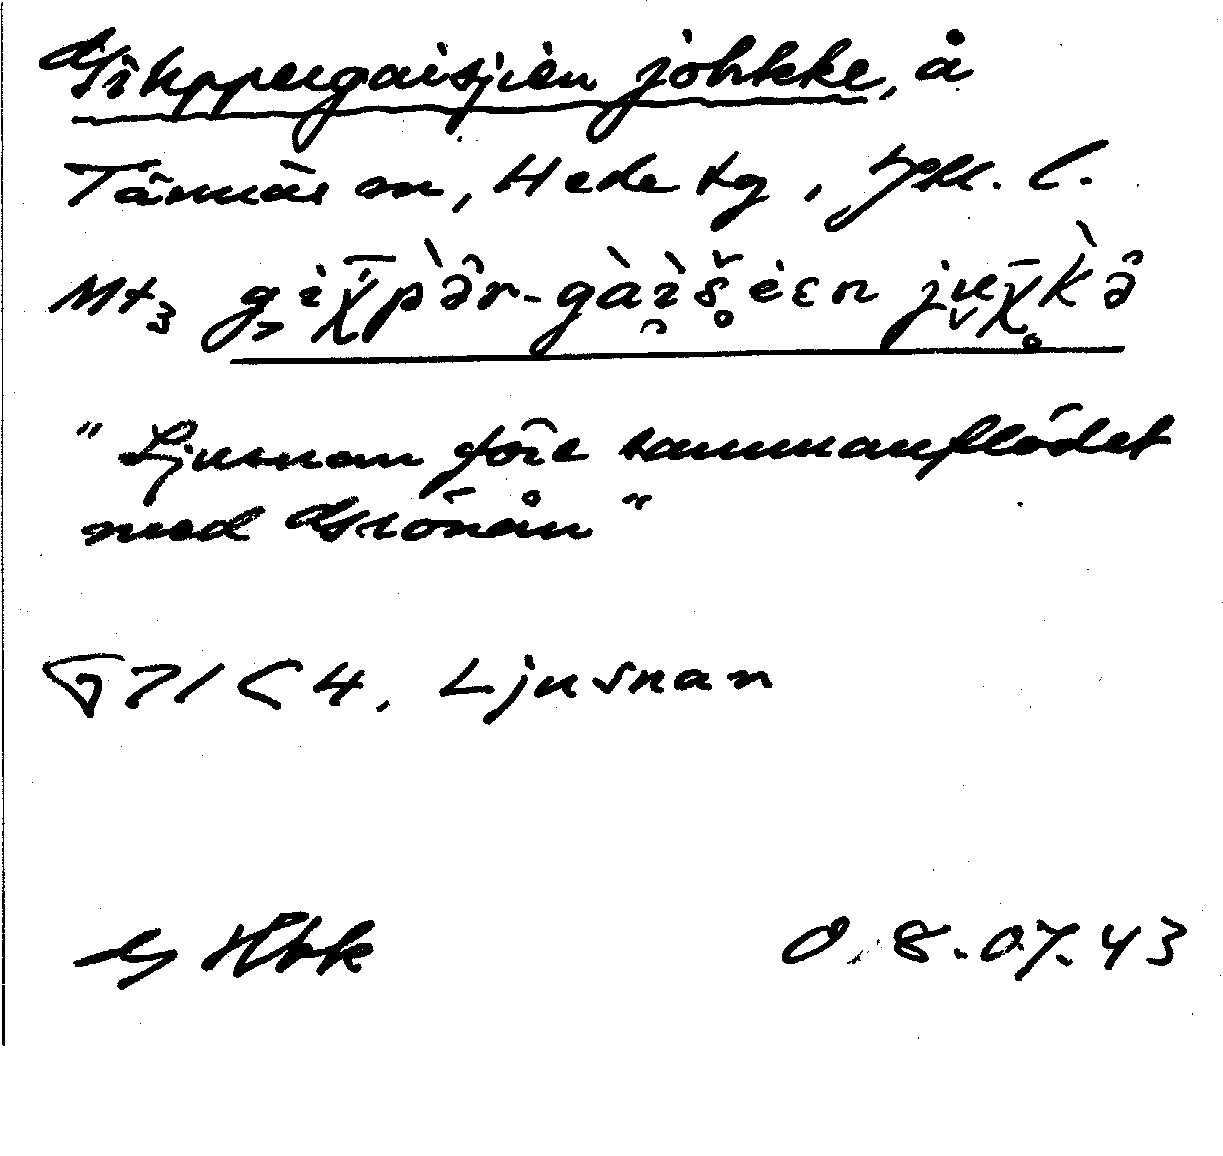 Gihppergaisjien johkke, å
Tännäs sn, Hede tg, Jmtl. l.
Mt3
"Ljusnan före sammanflödet
med Grönån"
71 C 4, Ljusnan
G Hbk 0.8.07.43